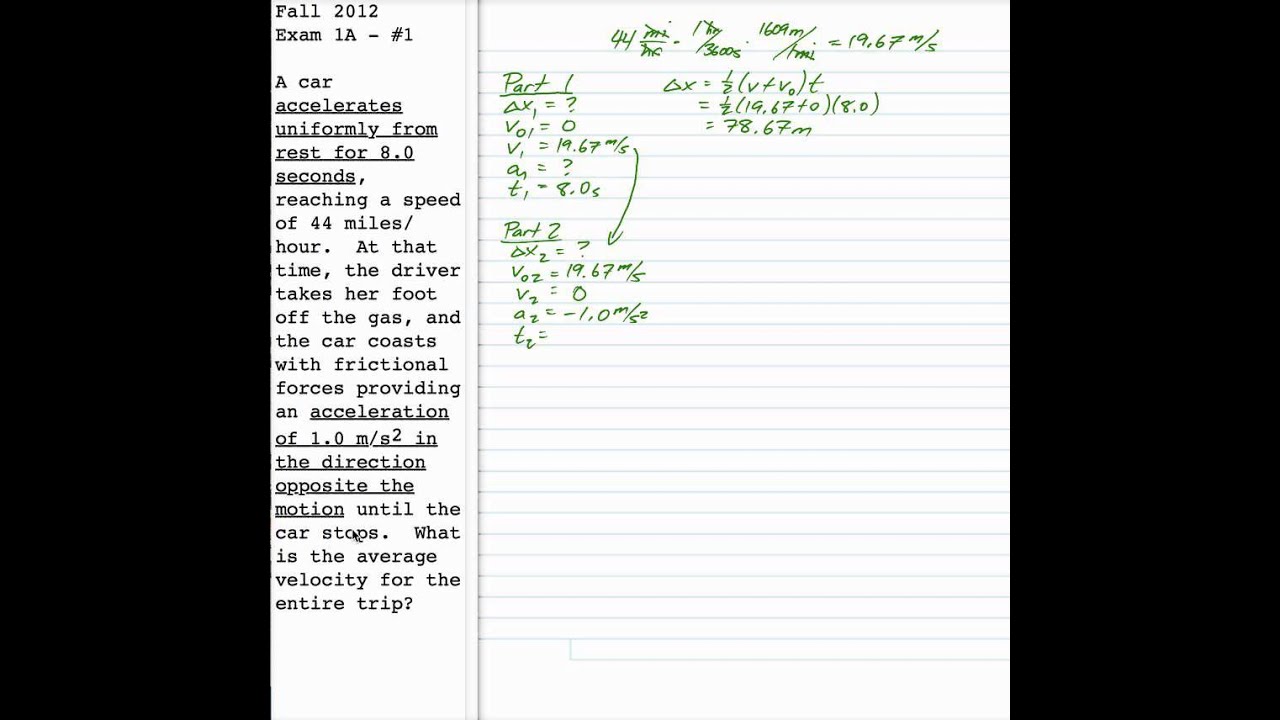 Fall 2012
Exam 1A - #1
A car
accelerates
uniformly from
rest for 8.0
seconds,
reaching a speed
of 44 miles/
hour.  At that
time, the driver
takes her foot
off the gas, and
the car coasts
with frictional
forces providing
an acceleration
of 1.0 m/s2 in
the direction
opposite the
motion until the
car stops.  What
is the average
velocity for the
entire trip?
44 mi/hr · 1 hr/3600s · 1609m/1mi = 19.67 m/s
Part 1
Δx₁ = ?
v₀₁ = 0
v₁ = 19.67 m/s
a₁ = ?
t₁ = 8.0s
Δx = ½(v+v₀)t
= ½(19.67+0)(8.0)
= 78.67m
Part 2
Δx₂ = ?
v₀₂ = 19.67 m/s
v₂ = 0
a₂ = -1.0 m/s²
t₂ =